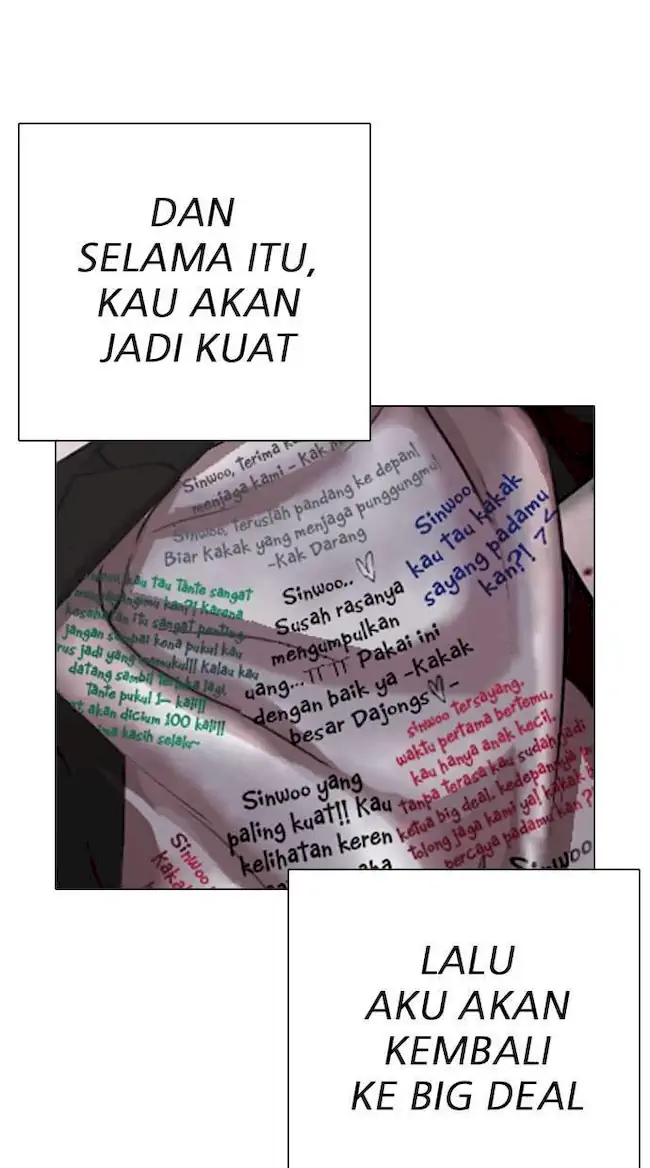 DAN
SELAMA ITU,
KAU AKAN
JADI KUAT
Sinwoo, terima
menjaga kami - Kak
Sinwoo, Teruslah pandang ke depan!
Biar Kakak yang menjaga punggungmu!
-Kak Darang
Sinwoo
kau tau kakak
sayang padamu
kan?!
kau tau Tante sangat
kan?! Karena
itu sangat penting
jangan sampai kena pukul kau
rus jadi yang memukul!! Kalau kau
datang sambil terluka lagi,
Tante pukul 1- kali!!
akan dicium 100 kali!!
kasih selalu~
Sinwoo.. ♡
Susah rasanya
mengumpulkan
uang...ㅠㅠ Pakai ini
dengan baik ya -Kakak
besar Dajongs♡-
Sinwoo tersayang,
waktu pertama bertemu,
kau hanya anak kecil.
tanpa terasa kau sudah jadi
ketua big deal. kedepannya
tolong jaga kami ya! kakak
percaya padamu kan?
Sinwoo yang
paling kuat!! Kau
kelihatan keren
Sinwoo
Kaka
Sinwoo
LALU
AKU AKAN
KEMBALI
KE BIG DEAL